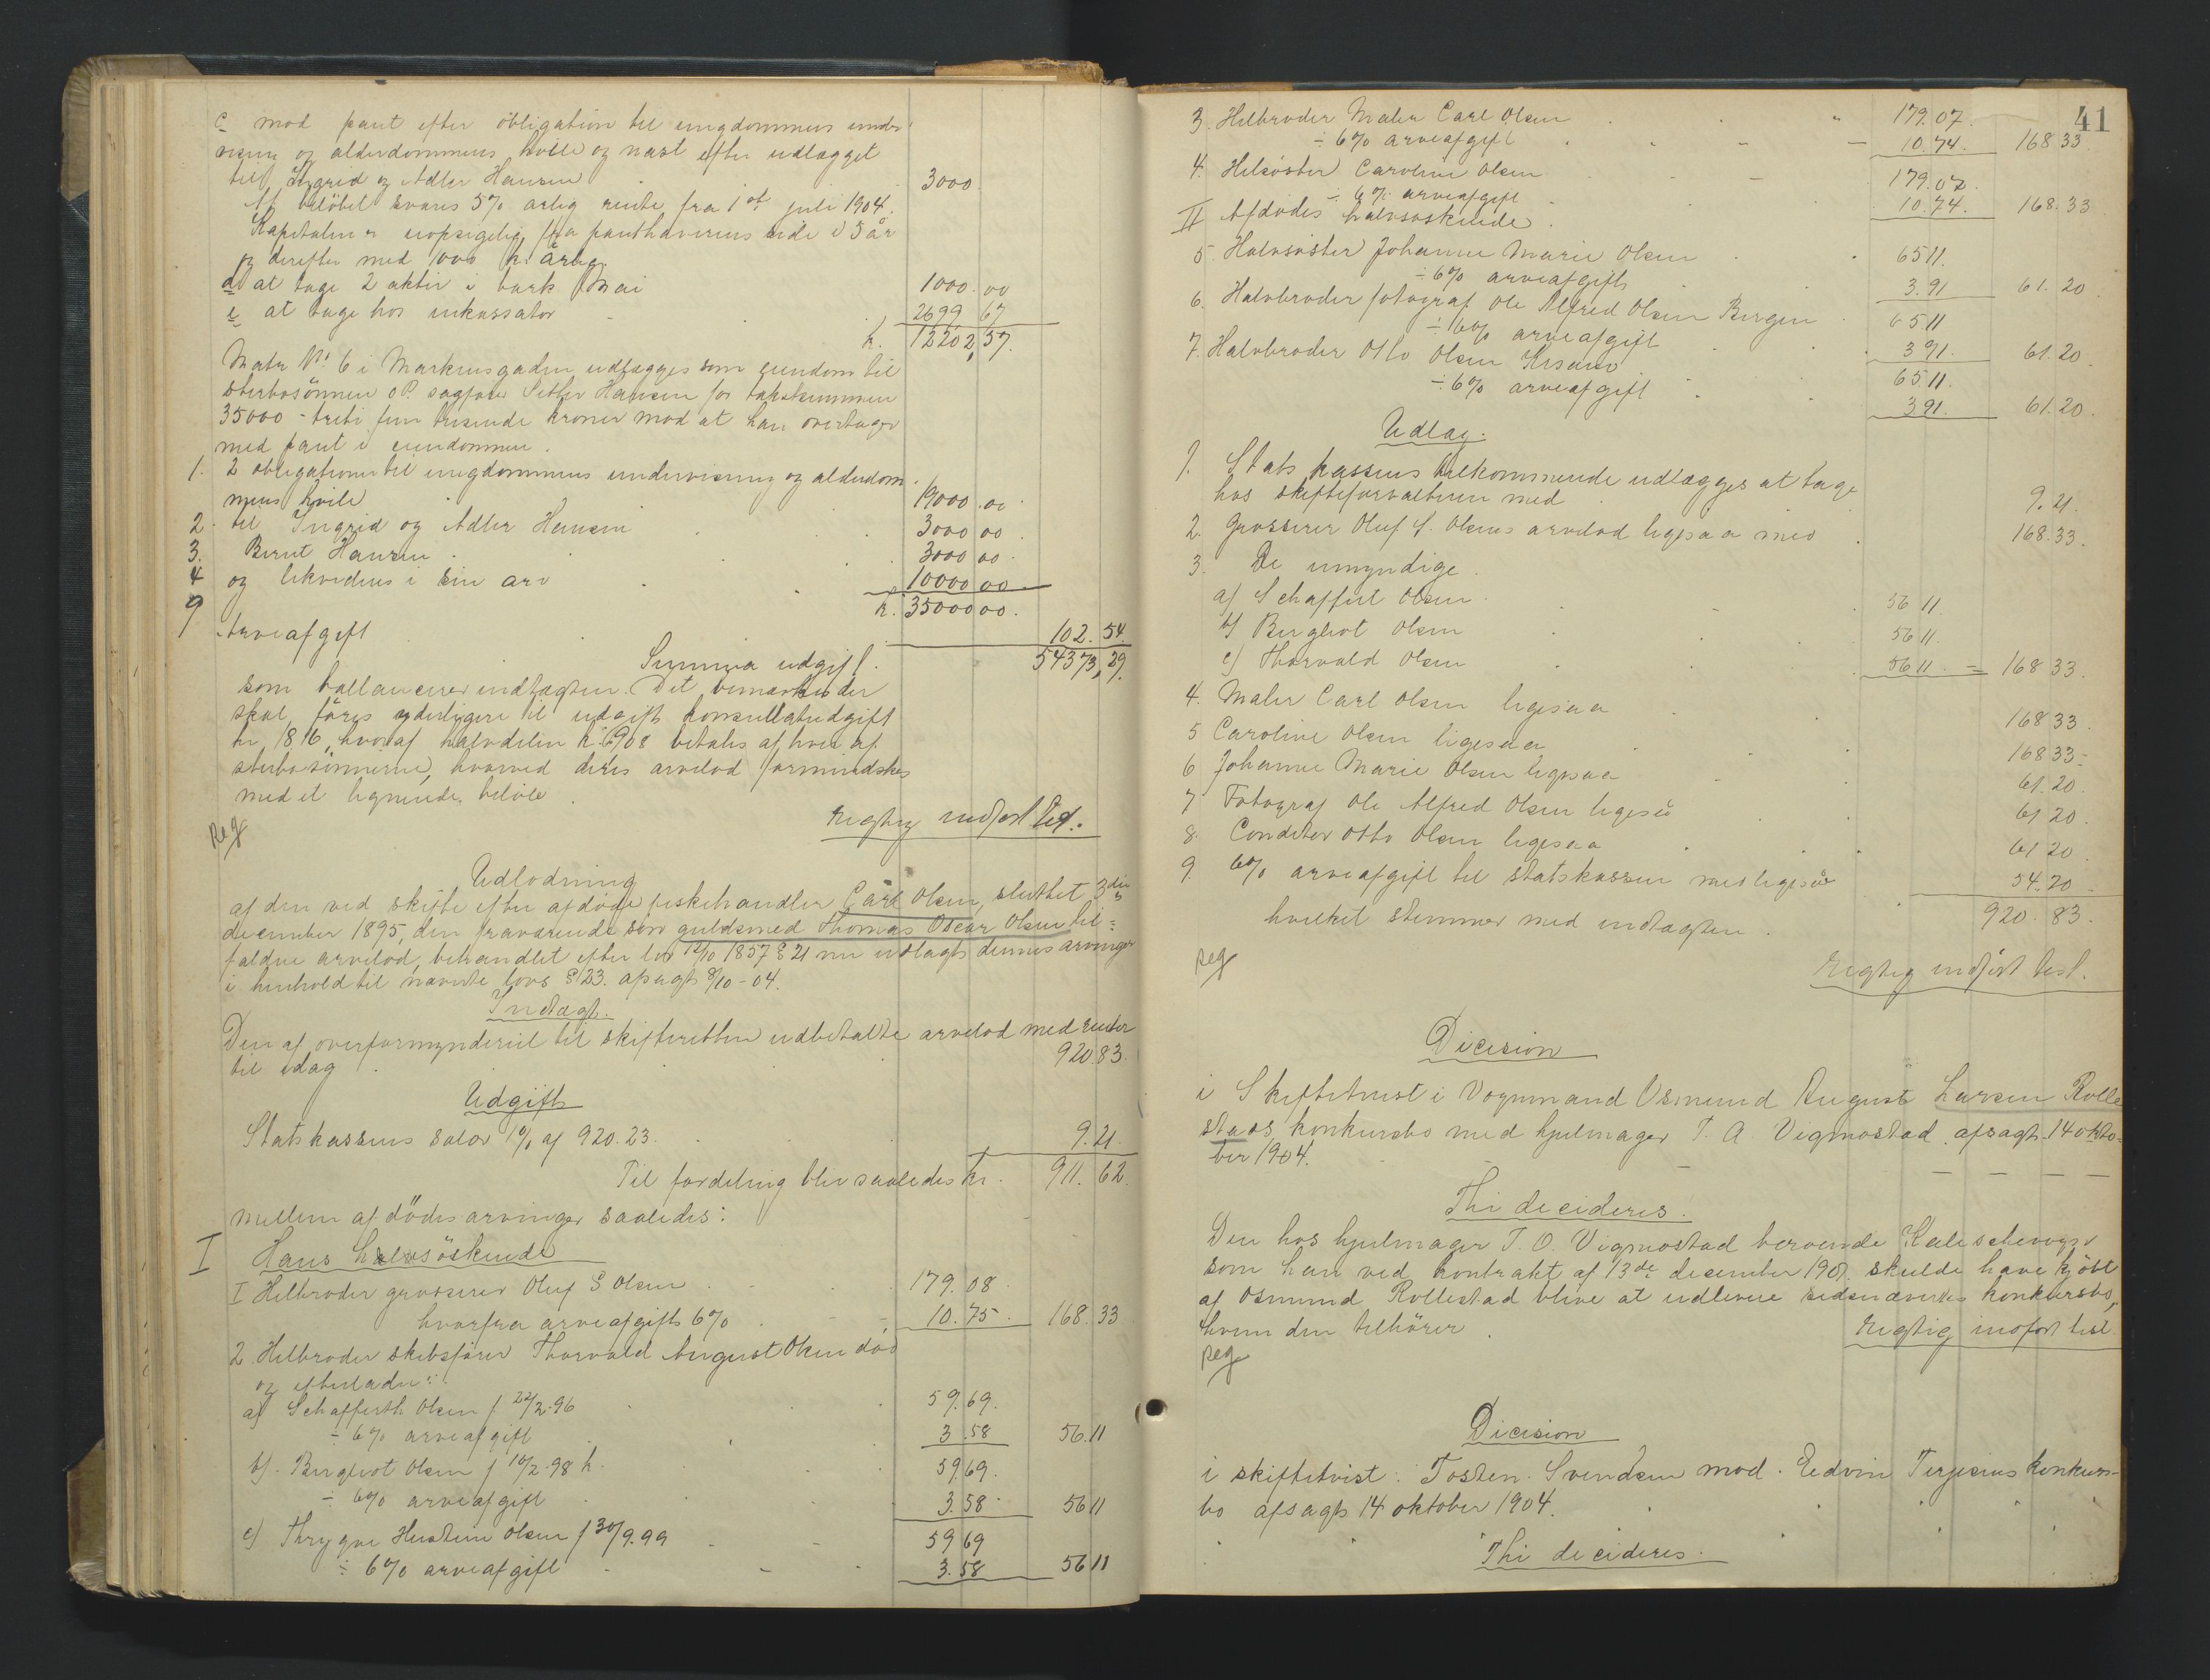 c mod pant efter obligation til ungdommens under
visning og alderdommens hvile og næst efter udlægget
til Ingrid og Adler Hansen 3000.
Af beløbet svares 5% årlig rente fra 1st juli 1904.
Kapitalen er uopsigelig fra panthaverens side i 5 år
og derefter med 1000 k. årlig.
d at tage 2 aktier i bark Mai 1000.00
e at tage hos inkassator 2699 67
k. 12202,57.
Matr N. 6 i Markensgaden udlægges som eiendom til
sterbosönnen o.r. sagförer Hansen for takstsummen
35000 - treti fem tusinde kroner mod at han overtager
med pant i eiendommen.
1. 2 obligationer til ungdommens undervisning og alderdom
mens hvile 19000.00
2. til Ingrid og Adler Hansen 3000 00
3. Bernt Hansen 3000 00.
4 og likvideres i sin arv 10000 00
k. 35000 00.
9 Arveafgift 102.54.
Summa udgift. 54373,29.
som ballancerer indtægten. Det bemærkes der
skal föres yderligere til udgift konsulatudgift
kr 18 16, hvoraf halvdelen k. 9 08 betales af hver af
sterbosönnerne, hvorved deres arvelod formindskes
med et lignende beløb.
Rigtig indført test.
Reg
Udlodning
af den ved skifte efter afdøde fiskehandler Carl Olsen, sluttet 3die
december 1895, den fraværende sön guldsmed Thomas Oscar Olsen til=
faldne arvelod, behandlet efter lov 12/10 1857 § 21 nu udlagt dennes arvinger
i henhold til nævnte lovs § 23. afsagt 8/10-04.
Indtægt.
Den af overformynderiet til skifteretten udbetalte arvelod med renter
til idag 920.83.
Udgift
Statskassens salær 1% af 920.23. 9.21.
Til fordeling blir saaledes kr. 911.62.
mellem afdödes arvinger saaledes:
I Hans helsöskende
I Helbroder grosserer Oluf S Olsen 179.08.
hvorfra arveafgift 6% 10.75. 168.33
2 Helbroder skibsförer Thorvald August Olsen död
og efterlader:
a) Schafferth Olsen f 22/2-96 59.69.
÷ 6% arveafgift 3.58 56.11
b). Bergliot Olsen f 10/2-98 59 69.
÷ 6% arveafgift 3.58. 56 11
c) Thrygve Olsen f 30/9.99 59 69
÷ 6% arveafgift 3.58 56 11
41
3. Helbroder Maler Carl Olsen 179.07.
÷ 6% arveafgift 10.74. 168 33.
4. Helsöster Caroline Olsen 179.07.
÷ 6% arveafgift 10.74. 168.33
II Afdödes halvsöskende.
5. Halvsöster Johanne Marie Olsen 65 11.
÷ 6% arveafgift 3.91 61.20
6. Halvbroder fotograf Ole Alfred Olsen Bergen 65 11
÷ 6% arveafgift 3 91. 61.20.
7. Halvbroder Otto Olsen Krsand 65.11.
÷ 6% arveafgift 3 91. 61.20.
Udlæg.
1. Statskassens tilkommende udlægges at tage
hos skifteforvalteren med 9.21.
2. Grosserer Oluf S. Olsens arvelod ligesaa med 168.33.
3. De umyndige.
a) Schaffert Olsen 56 11.
b) Bergliot Olsen 56 11.
c) Thorvald Olsen 56 11 = 168 33.
4. Maler Carl Olsen ligesaa 168 33
5 Caroline Olsen ligesaa 168 33-
6 Johanne Marie Olsen ligesaa 61.20.
7 Fotograf Ole Alfred Olsen ligeså 61 20.
8. Conditor Otto Olsen ligesaa 61 20.
9. 6% arveafgift til statskassen med ligeså 54.20
hvilket stemmer med indtægten. 920.83.
Reg
Rigtig indført test.
Dicision
i Skiftetvist i Vognmand Osmund August Larsen Rolle
stads konkursbo med hjulmager T. A. Vigmostad afsagt 14 okto=
ber 1904.
Thi decideres.
Den hos hjulmager T. O. Vigmostad beroende Kaleschevogn
som han ved kontrakt af 13de december 1901. skulde have kjöbt
af Osmund Rollestad blive at udlevere sidstnævntes konkursbo,
hvem den tilhörer.
Rigtig indført test
Reg
Dicision
i skiftetvist: Tosten Svendsen mod. Edvin Terjesens konkurs-
bo afsagt 14 oktober 1904.
Thi decideres.